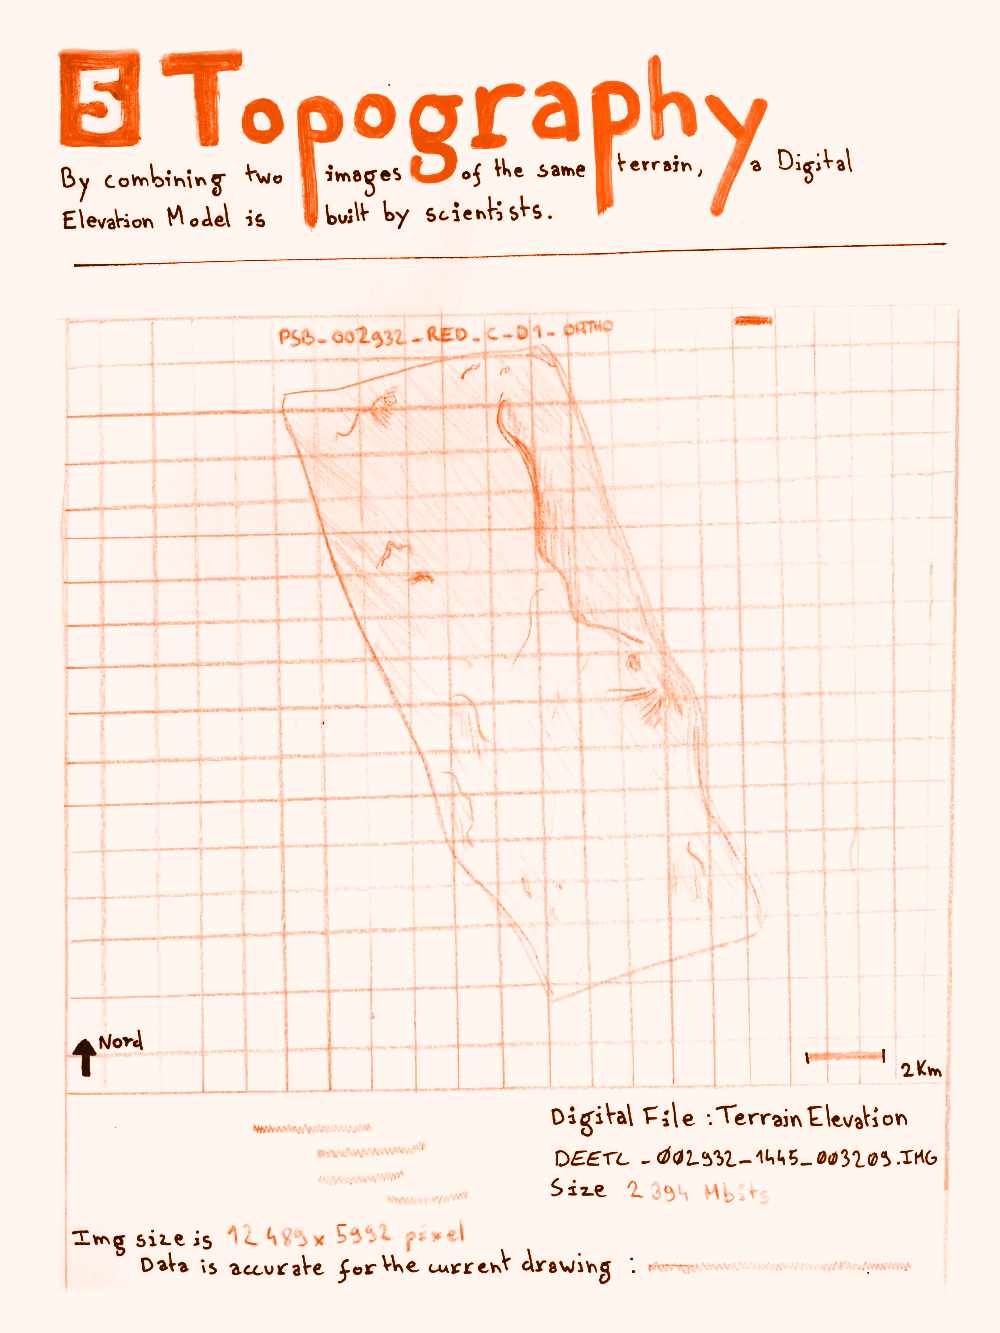 5 Topography
By combining two images of the same terrain, a Digital
Elevation Model is built by scientists.
PSB_002932_RED_C_D1_ORTHO
Nord
2 Km
Digital File : Terrain Elevation
DEETC _002932_1445_003209.IMG
Size 2 394 Mbits
Img size is 12 489 x 5992 pixel
Data is accurate for the current drawing :